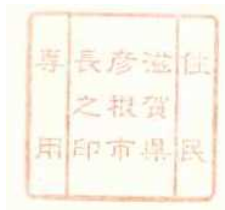 住民
滋賀県
彦根市
長之印
専用